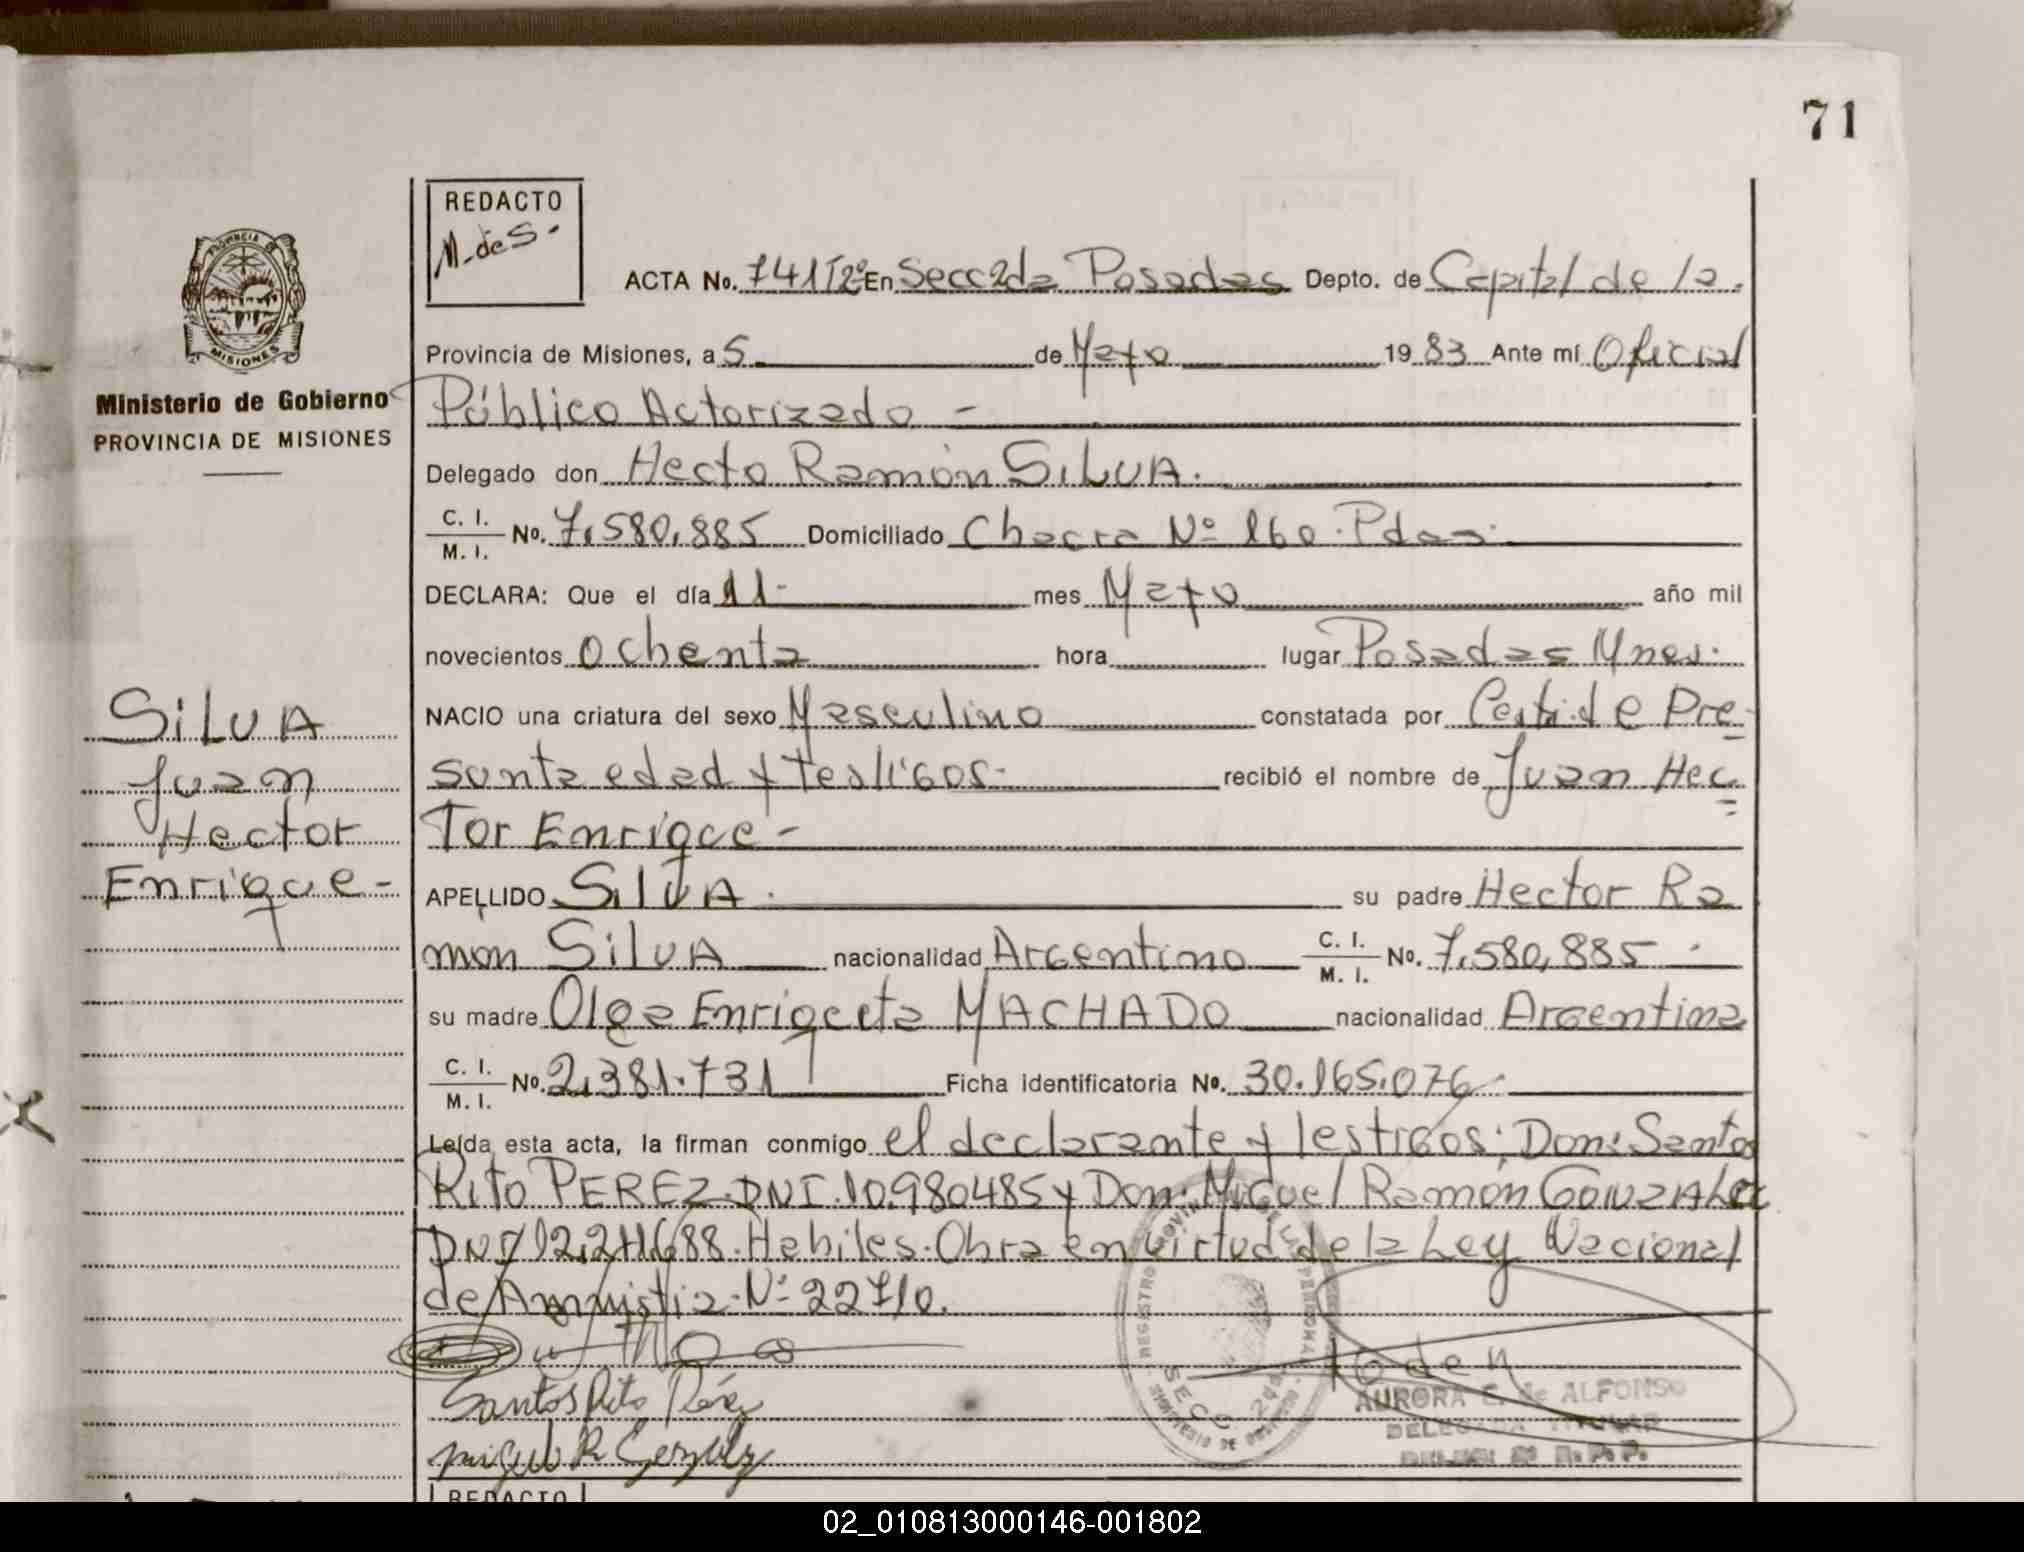 71
REDACTO
M. de S.
ACTA No. 741T2º En Secc 2da Posadas Depto. de Capital de la
Provincia de Misiones, a 5 de Mayo 1983 Ante mí Oficial
Público Actorizado -
Delegado don Hecto Ramón SILVA.
C. I.
M. I. No. 7.580.885 Domiciliado Chacra Nº 160. Pdas.
DECLARA: Que el día 11- mes Mayo año mil
novecientos ochenta hora lugar Posadas Mnes.
NACIO una criatura del sexo Masculino constatada por Certi. de Pre
sunta edad y testigos. recibió el nombre de Juan Hec
Tor Enrique -
APELLIDO SILVA. su padre Hector Ra
món SILVA nacionalidad Argentino C. I.
M. I. No. 7.580.885
su madre Olga Enriqueta MACHADO nacionalidad Argentina
C. I.
M. I. No. 2.381.731 Ficha identificatoria No. 30.165.076
Leída esta acta, la firman conmigo el declarante y testigos: Don: Santos
Rito PEREZ. DNI. 10.980485 y Don. Miguel Ramón GONZALez
DNI Habiles. Obra en virtud de la Ley Nacional
de Amnistia. Nº 22710.
Santos Rito Pérez
Miguel R Gonzalez
PROVINCIA DE
MISIONES
Ministerio de Gobierno
PROVINCIA DE MISIONES
SILVA
Juan
Hector
Enrique -
REGISTRO PROVINCIAL DE LAS PERSONAS
SECC. 2da
MINISTERIO DE GOBIERNO
AURORA E. de ALFONSO
DELEGADA TITULAR
R. P. P.
REDACTO
02_010813000146-001802